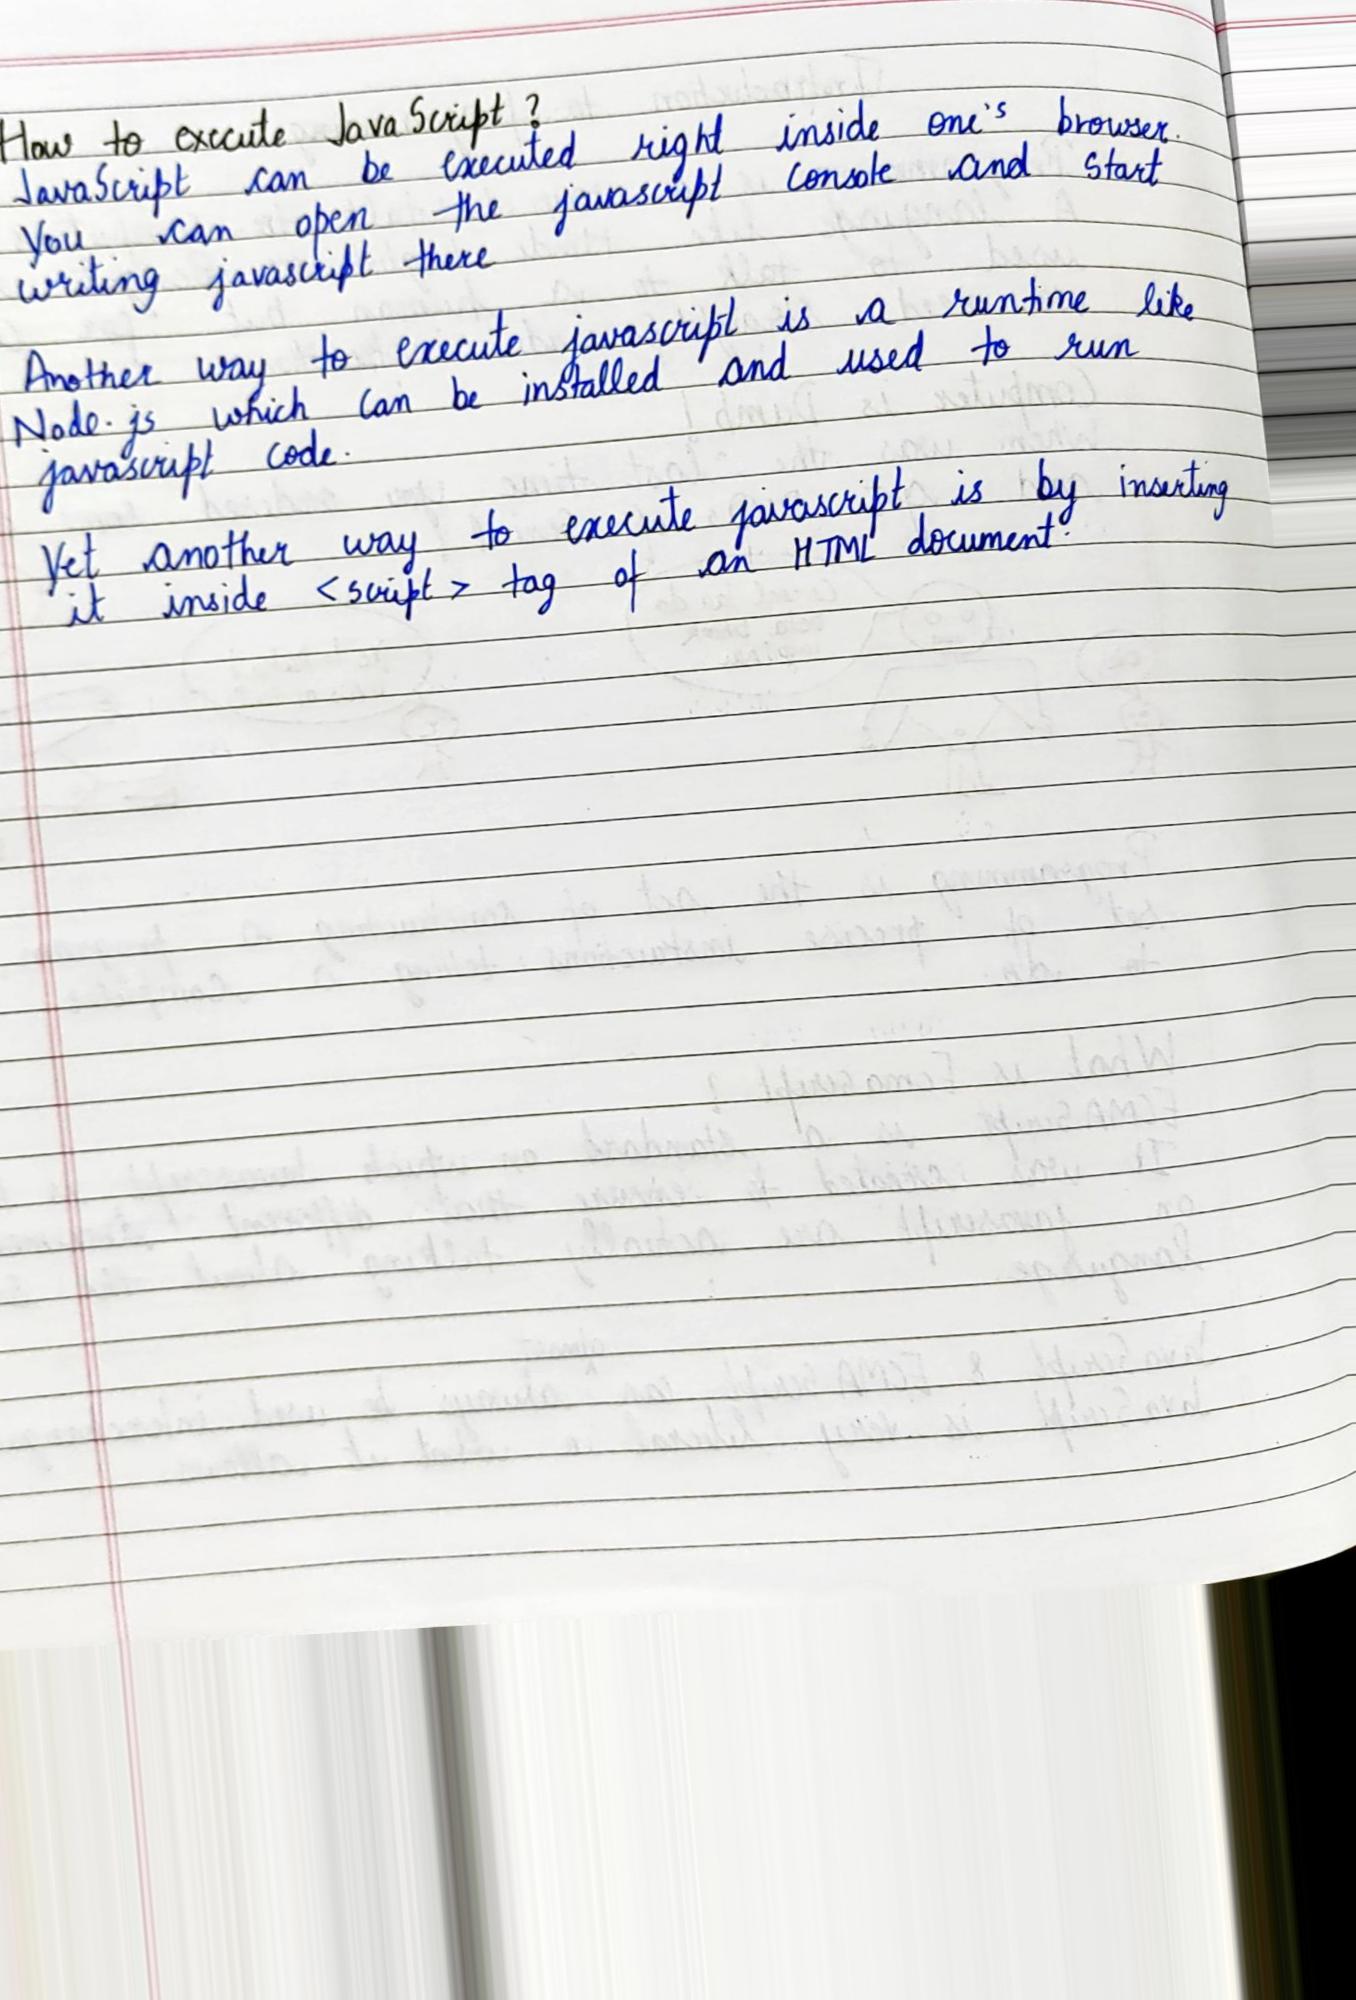 How to execute JavaScript?
JavaScript can be executed right inside one's browser.
You can open the javascript console and start
writing javascript there
Another way to execute javascript is a runtime like
Node.js which can be installed and used to run
javascript code.
Yet another way to execute javascript is by inserting
it inside <script> tag of an HTML document.